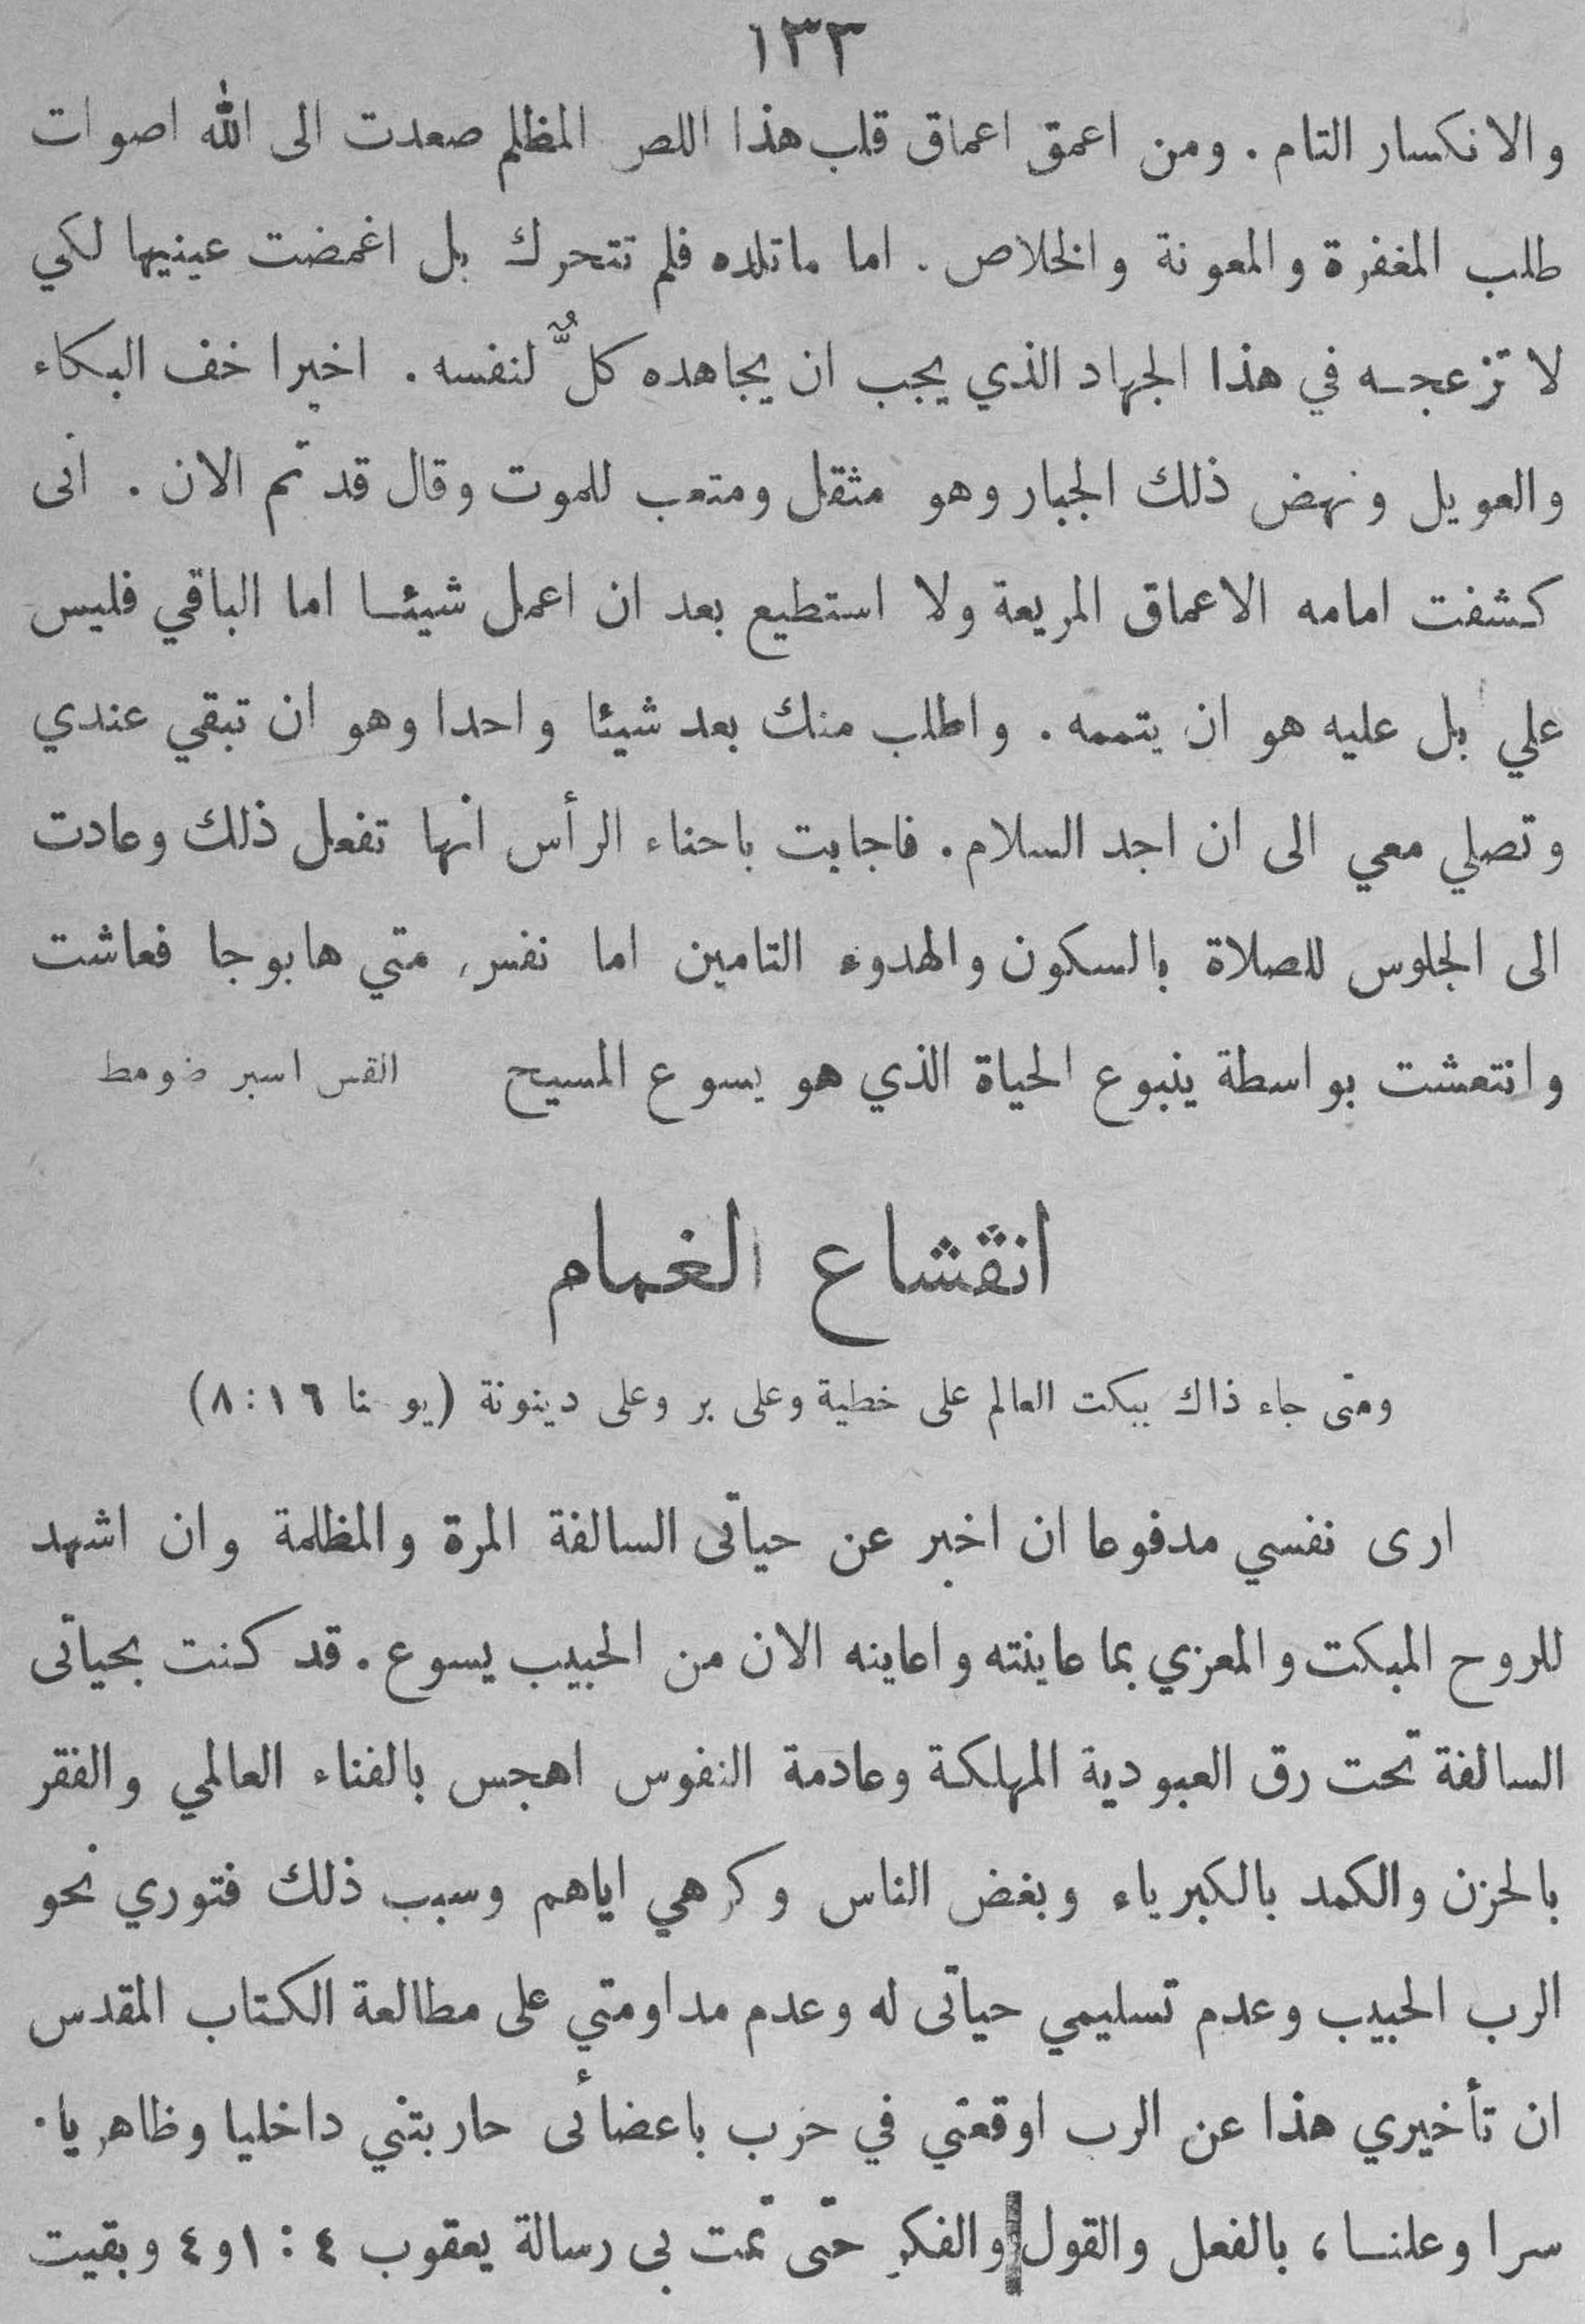 ١٣٣
والانكسار التام . ومن اعمق اعماق قلب هذا اللص المظلم صعدت الى الله اصوات
طلب المغفرة والمعونة والخلاص . اما ماتلده فلم تتحرك بل اغمضت عينيها لكي
لا تزعجه في هذا الجهاد الذي يجب ان يجاهده كلٌّ لنفسه . اخيرا خف البكاء
والعويل ونهض ذلك الجبار وهو مثقل ومتعب للموت وقال قد تم الان . انى
كشفت امامه الاعماق المريعة ولا استطيع بعد ان اعمل شيئا اما الباقي فليس
علي بل عليه هو ان يتممه . واطلب منك بعد شيئا واحدا وهو ان تبقي عندي
وتصلي معي الى ان اجد السلام . فاجابت باحناء الرأس انها تفعل ذلك وعادت
الى الجلوس للصلاة بالسكون والهدوء التامين اما نفس متي هابوجا فعاشت
وانتعشت بواسطة ينبوع الحياة الذي هو يسوع المسيح القس اسبر ضومط
انقشاع الغمام
ومتى جاء ذاك يبكت العالم على خطية وعلى بر وعلى دينونة (يو نا ١٦ : ٨)
ارى نفسي مدفوعا ان اخبر عن حياتى السالفة المرة والمظلمة وان اشهد
للروح المبكت والمعزي بما عاينته واعاينه الان من الحبيب يسوع . قد كنت بحياتى
السالفة تحت رق العبودية المهلكة وعادمة النفوس اهجس بالفناء العالمي والفقر
بالحزن والكمد بالكبرياء وبغض الناس وكرهي اياهم وسبب ذلك فتوري نحو
الرب الحبيب وعدم تسليمي حياتى له وعدم مداومتي على مطالعة الكتاب المقدس
ان تأخيري هذا عن الرب اوقعني في حرب باعضائى حاربتني داخليا وظاهريا .
سرا وعلنا ، بالفعل والقول والفكر حتى تمت بى رسالة يعقوب ٤ : ١و٤ وبقيت